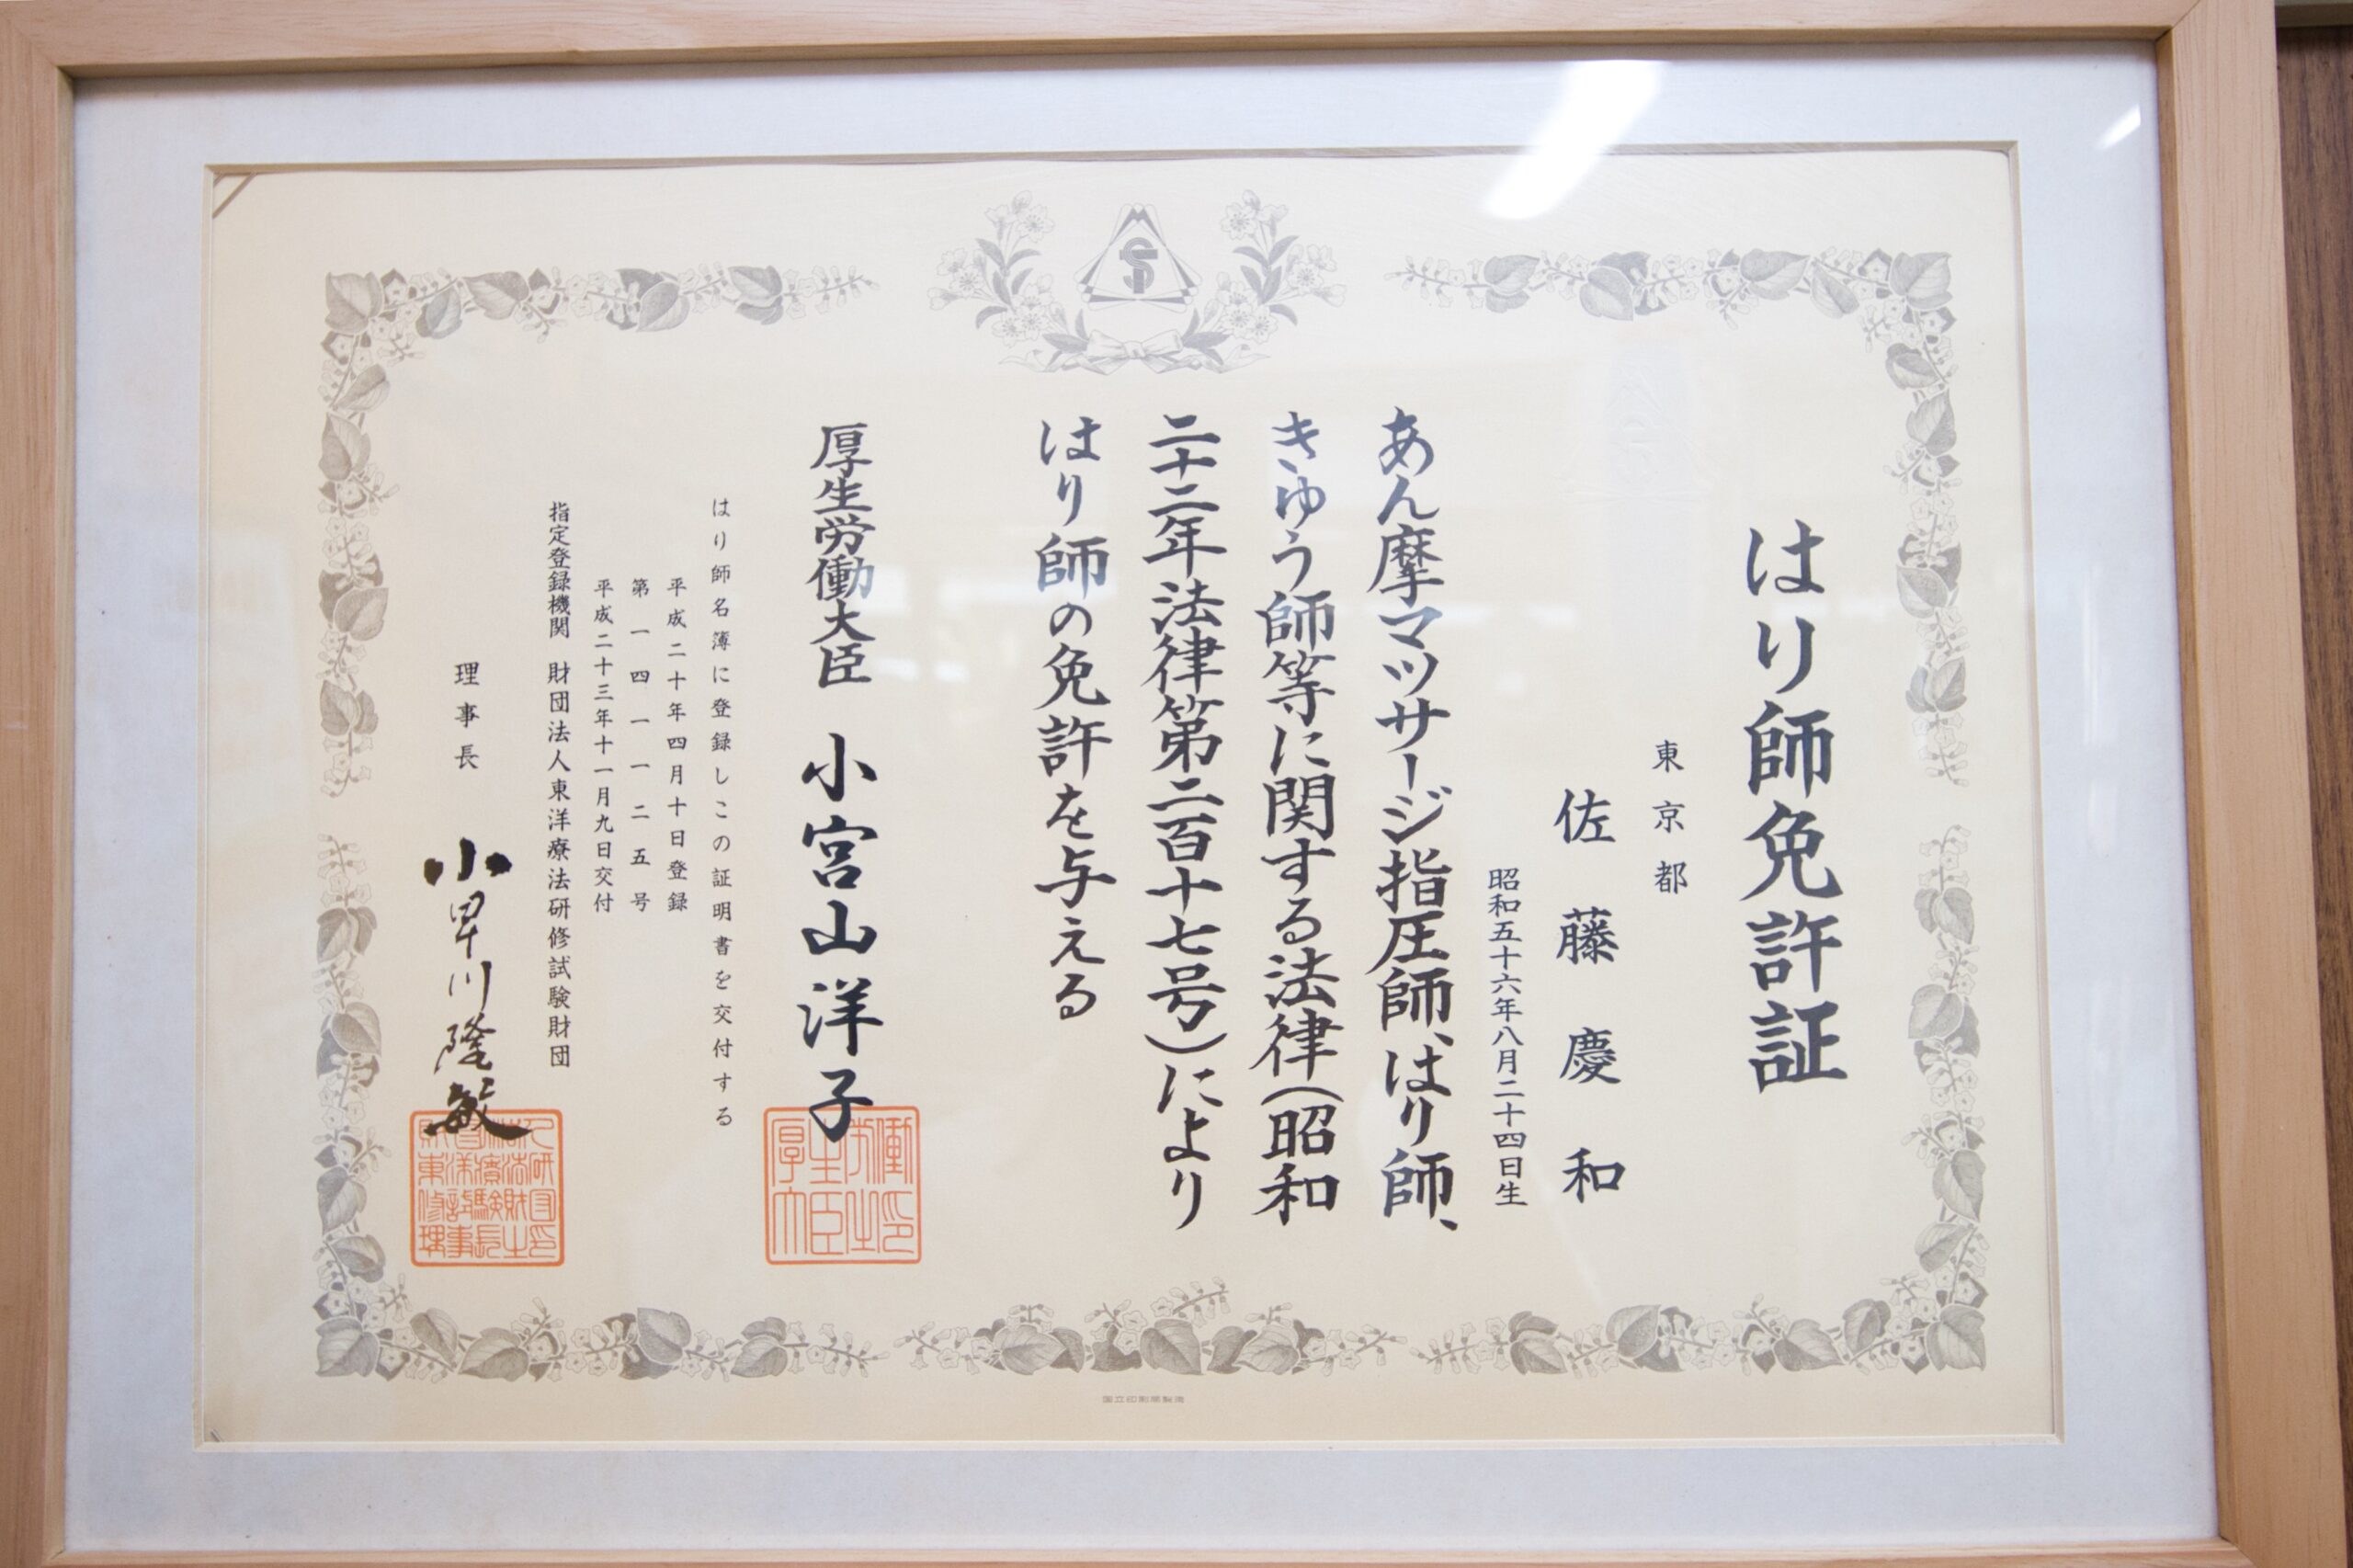 はり師免許証
東京都
佐藤慶和
昭和五十六年八月二十四日生
あん摩マツサージ指圧師、はり師、
きゆう師等に関する法律(昭和
二十二年法律第二百十七号)により
はり師の免許を与える
厚生労働大臣 小宮山洋子
はり師名簿に登録しこの証明書を交付する
平成二十年四月十日登録
第一四一一二五号
平成二十三年十一月九日交付
指定登録機関 財団法人東洋療法研修試験財団
理事長 小早川隆敏
国立印刷局製造